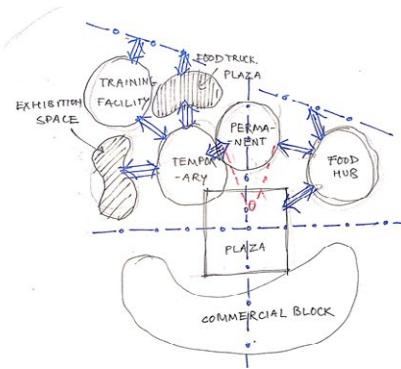 FOOD TRUCK
PLAZA
TRAINING
FACILITY
EXHIBITION
SPACE
PERMA-
NENT
TEMPOR
-ARY
FOOD
HUB
PLAZA
COMMERCIAL BLOCK